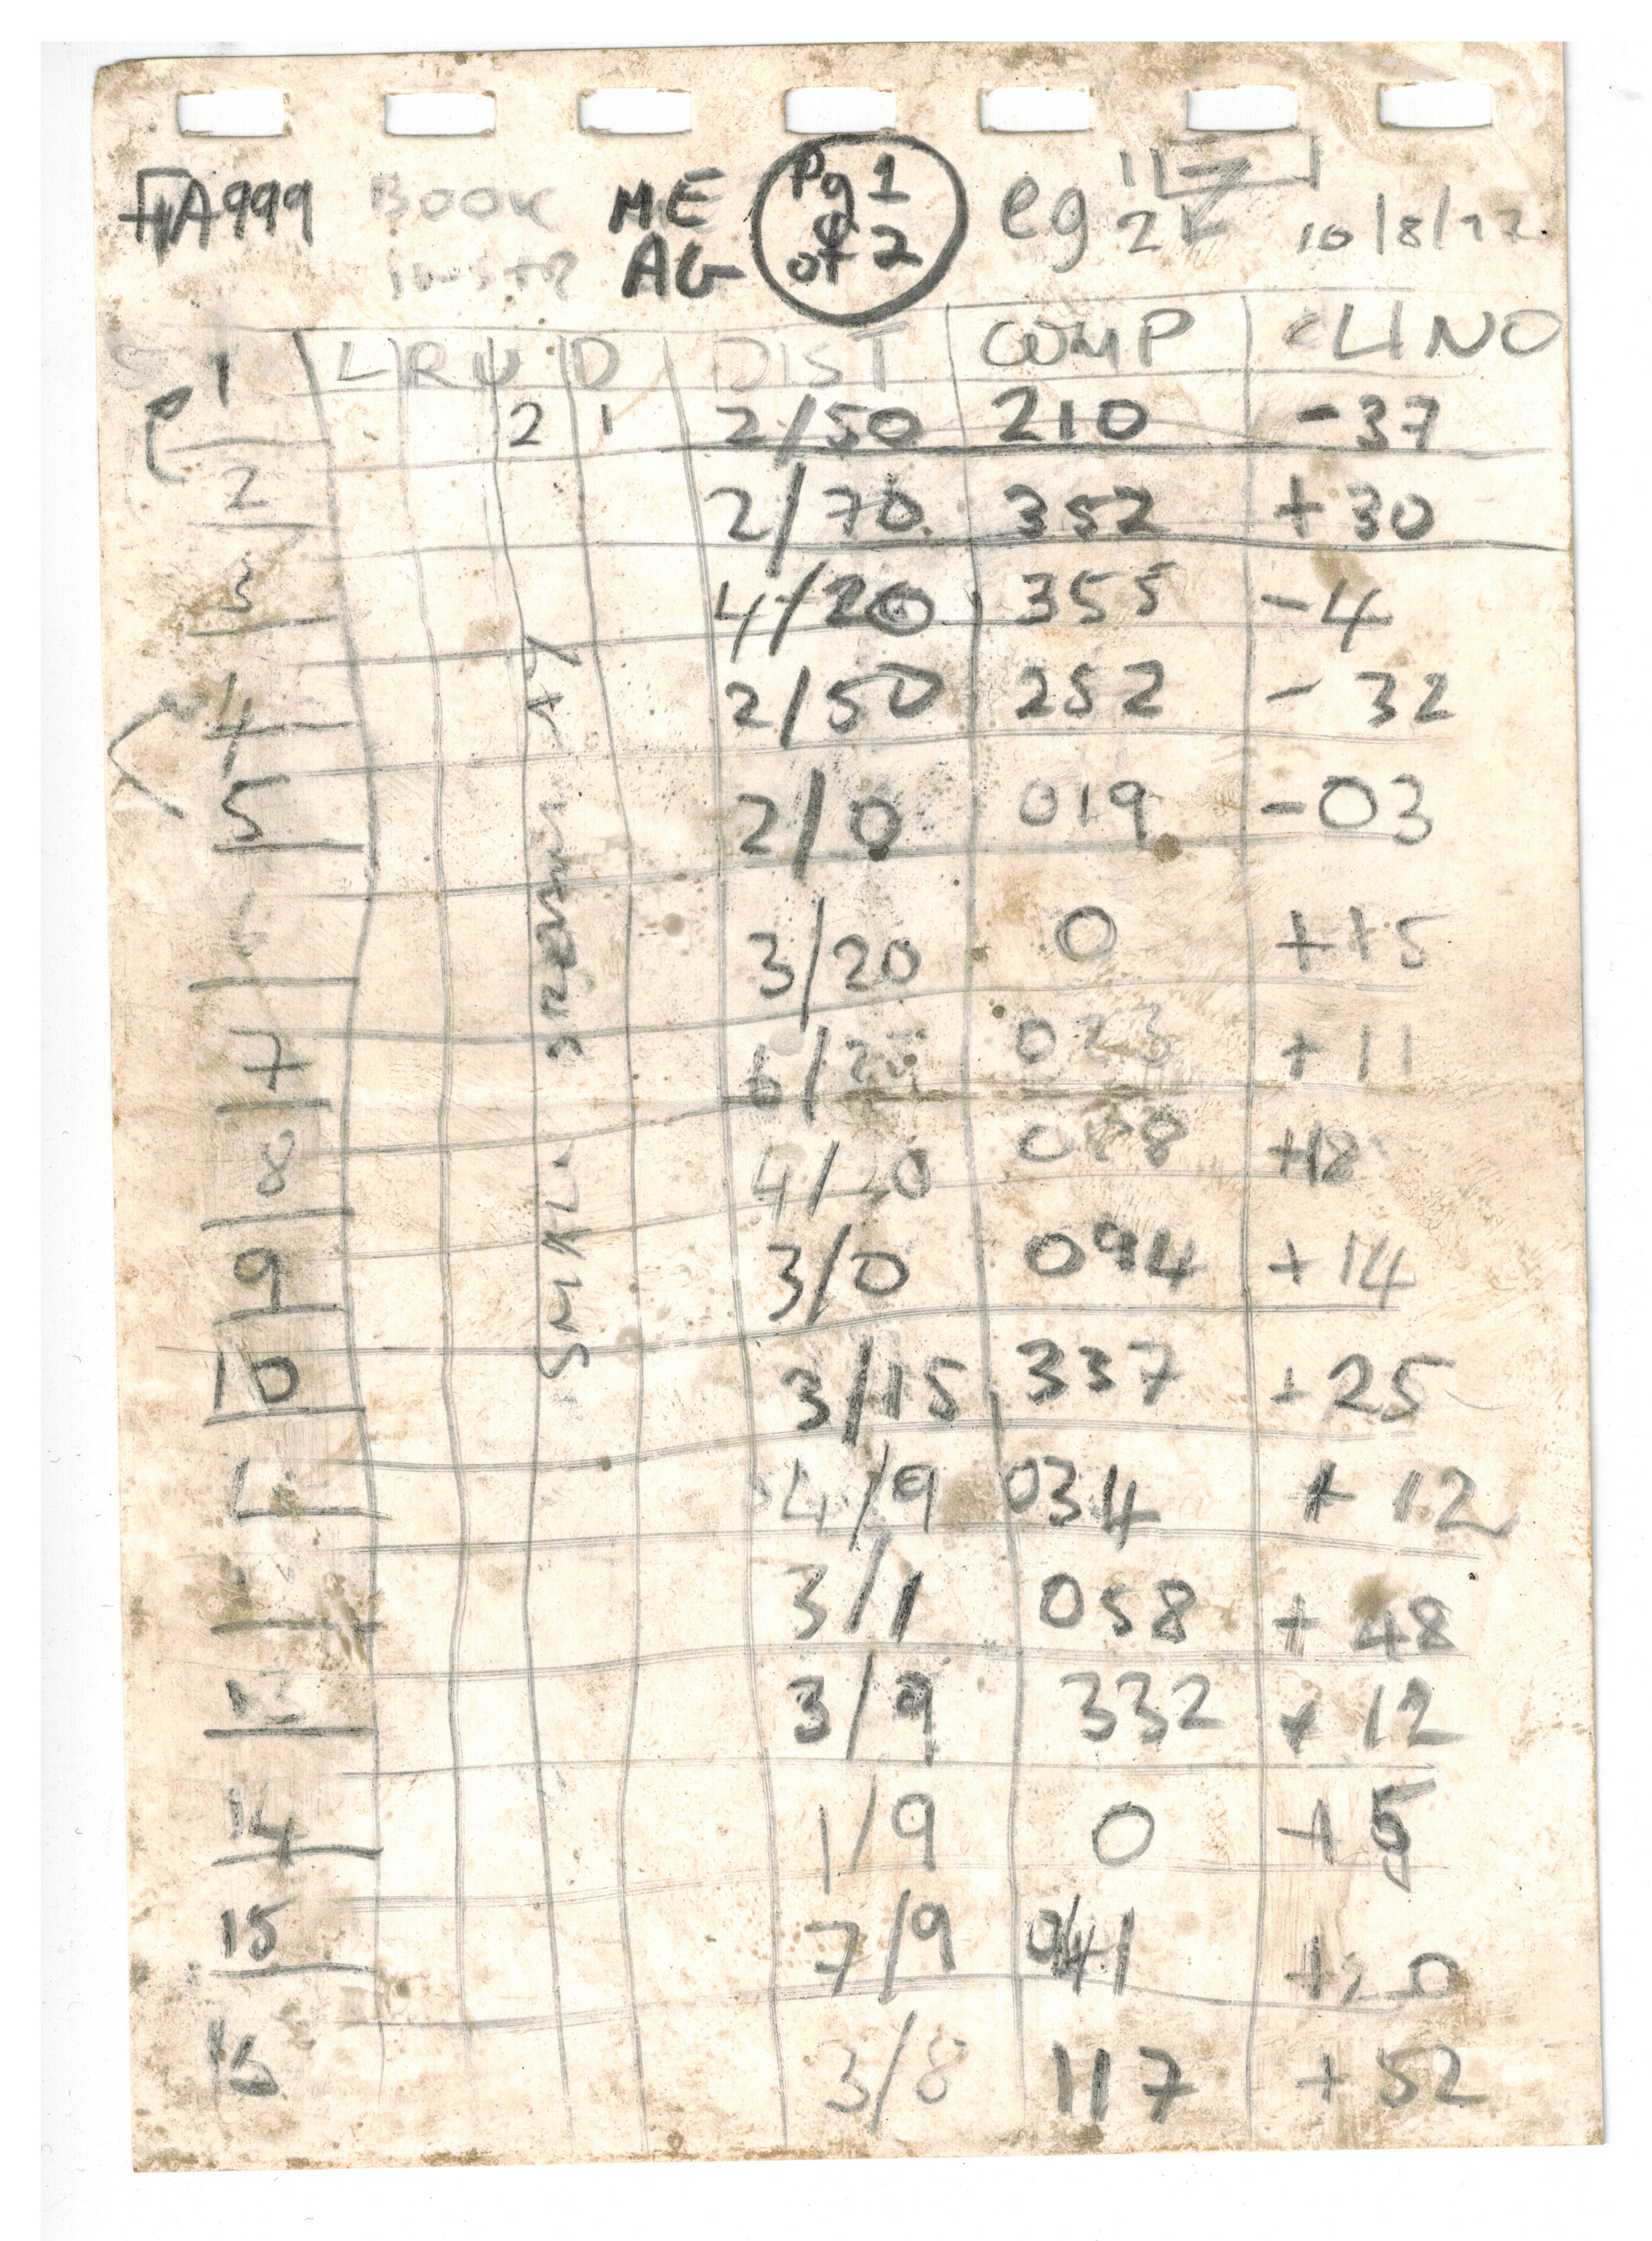 BOOK ME Pg 1 eg 1
INSTR AG of 2 2 10/8/
L R U D DIST COMP CLINO
1
2 1 2/50 210 -37
2 2/70 352 +30
3 4/20 355 -4
4 2/50 252 -32
5 2/0 019 -03
6 3/20 0 +15
7 6/20 023 +11
8 +18
9 3/0 094 +14
10 3/15 337 +25
4/9 034 +12
3/1 058 +48
13 3/9 332 +12
14 1/9 0 +5
15 7/9 041 +20
16 3/8 117 +52
SMALL STREAMWAY